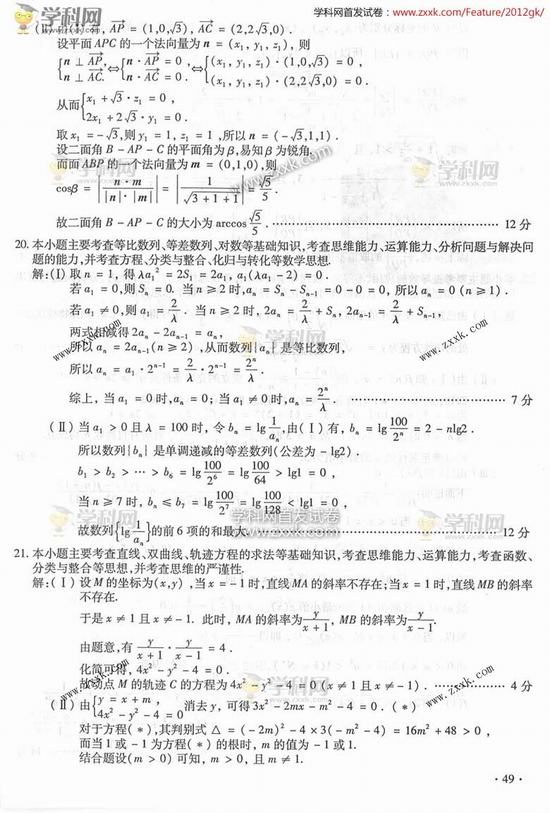 学科网首发试卷:www.zxxk.com/Feature/2012gk/
(Ⅱ)由图可知,AP = (1,0,√3), AC = (2,2√3,0).
设平面 APC 的一个法向量为 n = (x₁, y₁, z₁), 则
{n ⊥ AP, n ⊥ AC. ⇔ {n · AP = 0, n · AC = 0. ⇔ {(x₁, y₁, z₁) · (1,0,√3) = 0, (x₁, y₁, z₁) · (2,2√3,0) = 0.
从而{x₁ + √3 · z₁ = 0, 2x₁ + 2√3 · y₁ = 0.
取 x₁ = -√3,则 y₁ = 1, z₁ = 1, 所以 n = (-√3,1,1).
设二面角 B - AP - C 的平面角为 β,易知 β 为锐角.
而面 ABP 的一个法向量为 m = (0,1,0),则
cosβ = |n · m / |n| · |m|| = |1/√(3+1+1)| = √5/5.
故二面角 B - AP - C 的大小为 arccos √5/5. ………… 12 分
20. 本小题主要考查等比数列、等差数列、对数等基础知识,考查思维能力、运算能力、分析问题与解决问
题的能力,并考查方程、分类与整合、化归与转化等数学思想.
解:(Ⅰ)取 n = 1, 得 λa₁² = 2S₁ = 2a₁, a₁(λa₁ - 2) = 0.
若 a₁ = 0,则 Sₙ = 0. 当 n ≥ 2 时,aₙ = Sₙ - Sₙ₋₁ = 0 - 0 = 0, 所以 aₙ = 0 (n ≥ 1).
若 a₁ ≠ 0,则 a₁ = 2/λ. 当 n ≥ 2 时, 2aₙ = 2/λ + Sₙ, 2aₙ₋₁ = 2/λ + Sₙ₋₁,
两式相减得 2aₙ - 2aₙ₋₁ = aₙ,
所以 aₙ = 2aₙ₋₁(n ≥ 2), 从而数列{aₙ} 是等比数列,
所以 aₙ = a₁ · 2ⁿ⁻¹ = 2/λ · 2ⁿ⁻¹ = 2ⁿ/λ.
综上, 当 a₁ = 0 时,aₙ = 0; 当 a₁ ≠ 0 时,aₙ = 2ⁿ/λ. ………… 7 分
(Ⅱ) 当 a₁ > 0 且 λ = 100 时, 令 bₙ = lg 1/aₙ, 由(Ⅰ)有, bₙ = lg 100/2ⁿ = 2 - nlg2.
所以数列{bₙ} 是单调递减的等差数列(公差为 - lg2).
b₁ > b₂ > ⋯ > b₆ = lg 100/2⁶ = lg 100/64 > lg1 = 0,
当 n ≥ 7 时, bₙ ≤ b₇ = lg 100/2⁷ = lg 100/128 < lg1 = 0,
故数列{lg 1/aₙ}的前 6 项的和最大. ………… 12 分
21. 本小题主要考查直线、双曲线、轨迹方程的求法等基础知识,考查思维能力、运算能力,考查函数、
分类与整合等思想,并考查思维的严谨性.
解:(Ⅰ) 设 M 的坐标为(x,y), 当 x = -1 时,直线 MA 的斜率不存在;当 x = 1 时,直线 MB 的斜率
不存在.
于是 x ≠ 1 且 x ≠ -1. 此时, MA 的斜率为 y/(x+1), MB 的斜率为 y/(x-1).
由题意,有 y/(x+1) · y/(x-1) = 4.
化简可得, 4x² - y² - 4 = 0.
故动点 M 的轨迹 C 的方程为 4x² - y² - 4 = 0 (x ≠ 1 且 x ≠ -1). ………… 4 分
(Ⅱ) 由{y = x + m, 4x² - y² - 4 = 0 消去 y, 可得 3x² - 2mx - m² - 4 = 0. (*)
对于方程(*),其判别式 △ = (-2m)² - 4 × 3(-m² - 4) = 16m² + 48 > 0,
而当 1 或 -1 为方程(*)的根时, m 的值为 -1 或 1.
结合题设(m > 0)可知, m > 0, 且 m ≠ 1.
· 49 ·